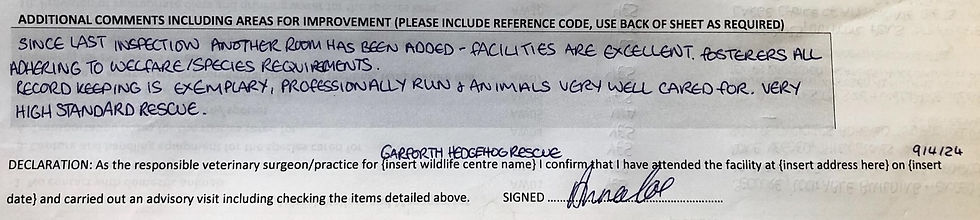 ADDITIONAL COMMENTS INCLUDING AREAS FOR IMPROVEMENT (PLEASE INCLUDE REFERENCE CODE, USE BACK OF SHEET AS REQUIRED)
SINCE LAST INSPECTION ANOTHER ROOM HAS BEEN ADDED - FACILITIES ARE EXCELLENT. FOSTERERS ALL
ADHERING TO WELFARE/SPECIES REQUIREMENTS.
RECORD KEEPING IS EXEMPLARY, PROFESSIONALLY RUN & ANIMALS VERY WELL CARED FOR. VERY
HIGH STANDARD RESCUE.
GARFORTH HEDGEHOG RESCUE 9/4/24
DECLARATION: As the responsible veterinary surgeon/practice for {insert wildlife centre name} I confirm that I have attended the facility at {insert address here} on {insert
date} and carried out an advisory visit including checking the items detailed above. SIGNED ..................................